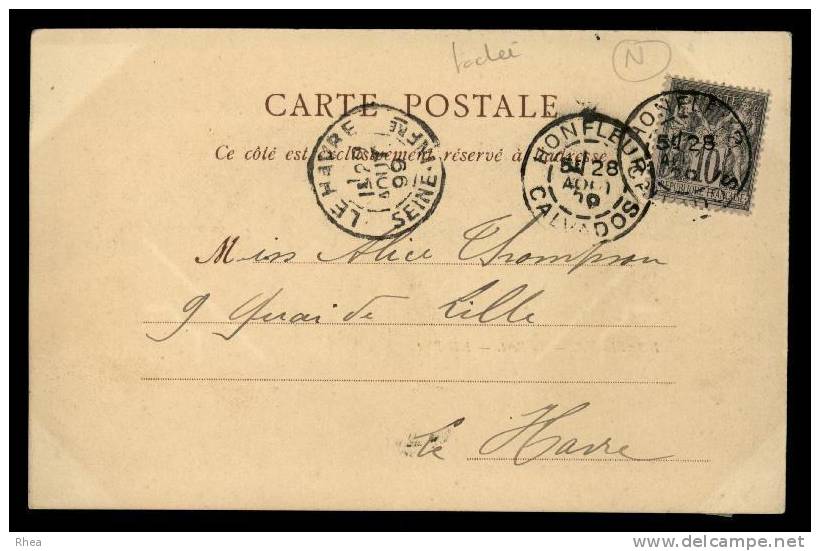 tachée
N
CARTE POSTALE
Ce côté est exclusivement réservé à l'adresse
LE HAVRE
SEINE-INFRE
29
AOUT
99
HONFLEUR
28
AOUT
CALVADOS
HONFLEUR
28
10
Miss Alice Thompson
9 Quai de Lille
Le Havre
Rhea
www.delcampe.net